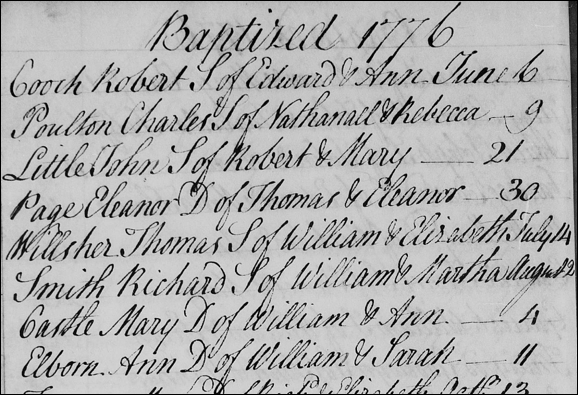 Baptized 1776
Gooch Robert S of Edward & Ann June 6
Poulton Charles S of Nathanael & Rebecca 9
Little John S of Robert & Mary 21
Page Eleanor D of Thomas & Eleanor 30
Willsher Thomas S of William & Elizabeth July 14
Smith Richard S of William & Martha August 2
Castle Mary D of William & Ann 4
Elborn Ann D of William & Sarah 11
D of & Elizabeth 13